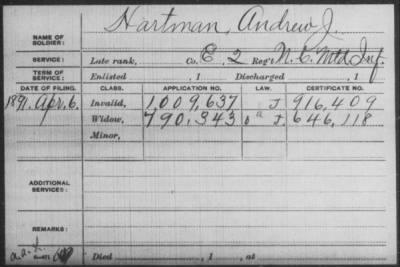 Hartman, Andrew J.
NAME OF SOLDIER:
SERVICE: Late rank, Co. E, 2 Reg't N.C. Mtd Inf.
TERM OF SERVICE: Enlisted , 1 Discharged , 1
DATE OF FILING. CLASS. APPLICATION NO. LAW. CERTIFICATE NO.
1891. Apr. 6. Invalid, 1,009,637 J 916,409
Widow, 790,343 J. 646,118
Minor,
ADDITIONAL SERVICES:
REMARKS:
Died , 1 , at